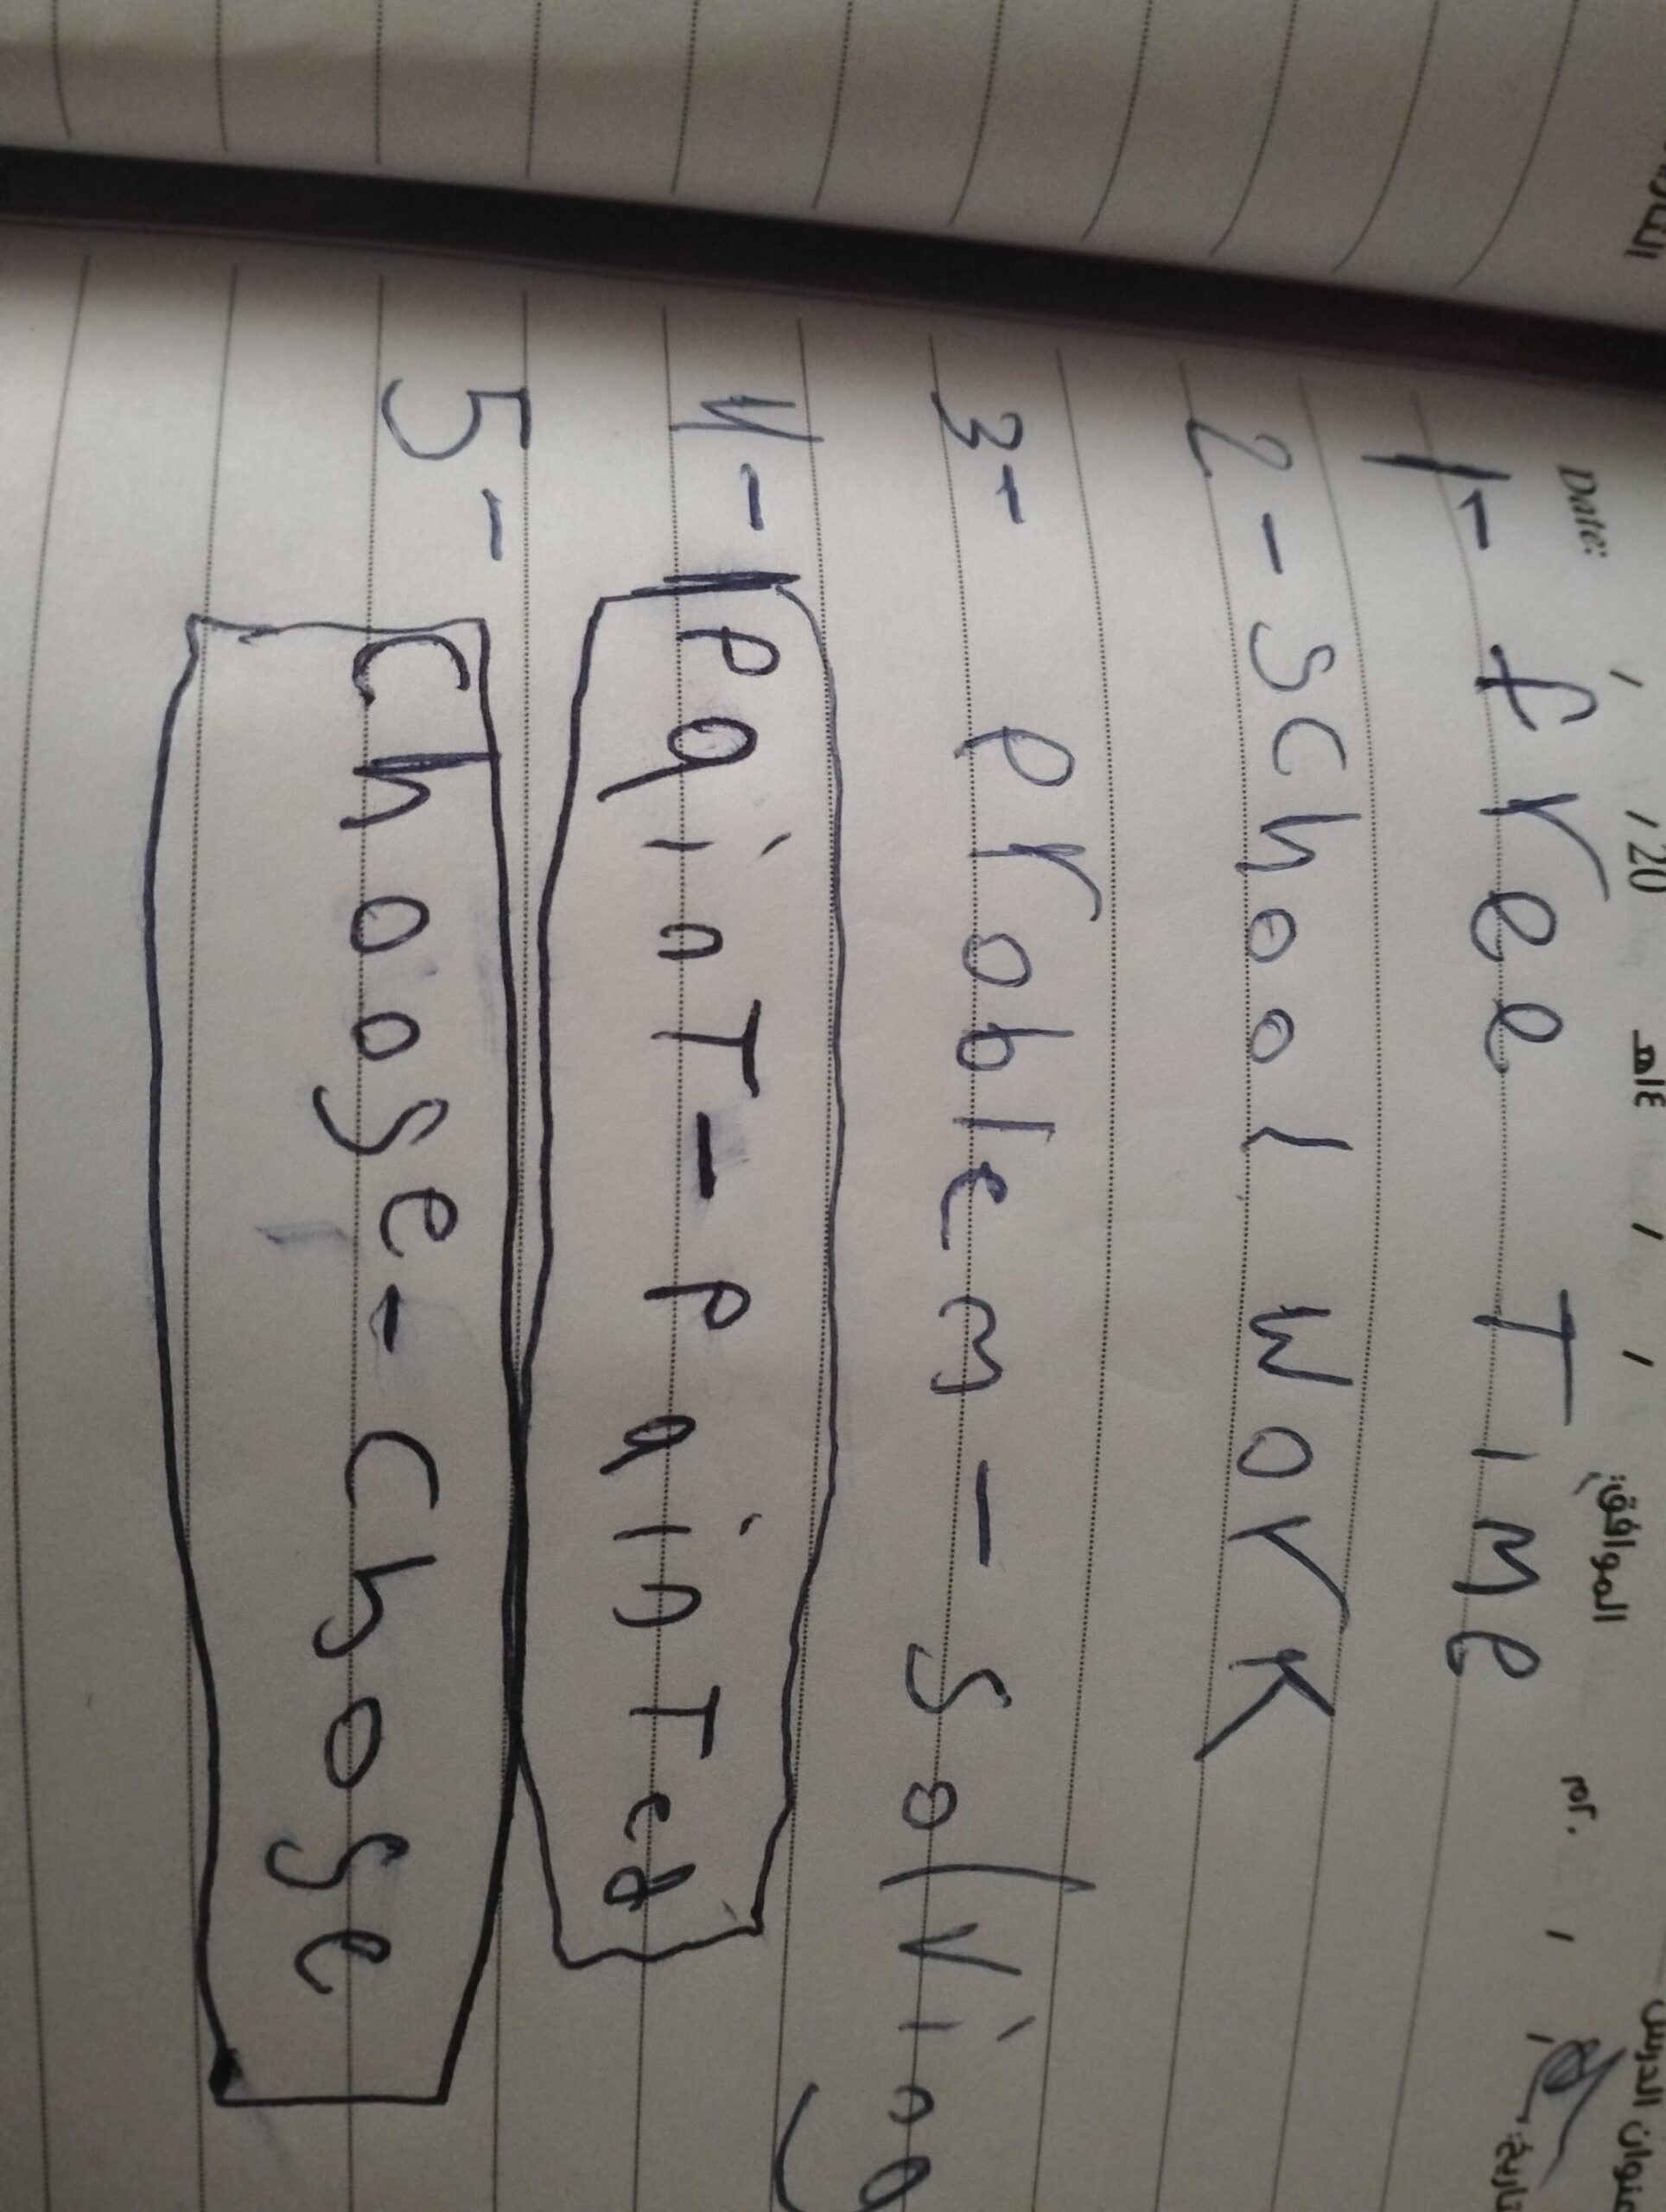 عنوان الدرس
Date: / / 20 الموافق: / / عام
1- free Time
2- school work
3- problem - solving
4- painT - painTed
5- choose - chose